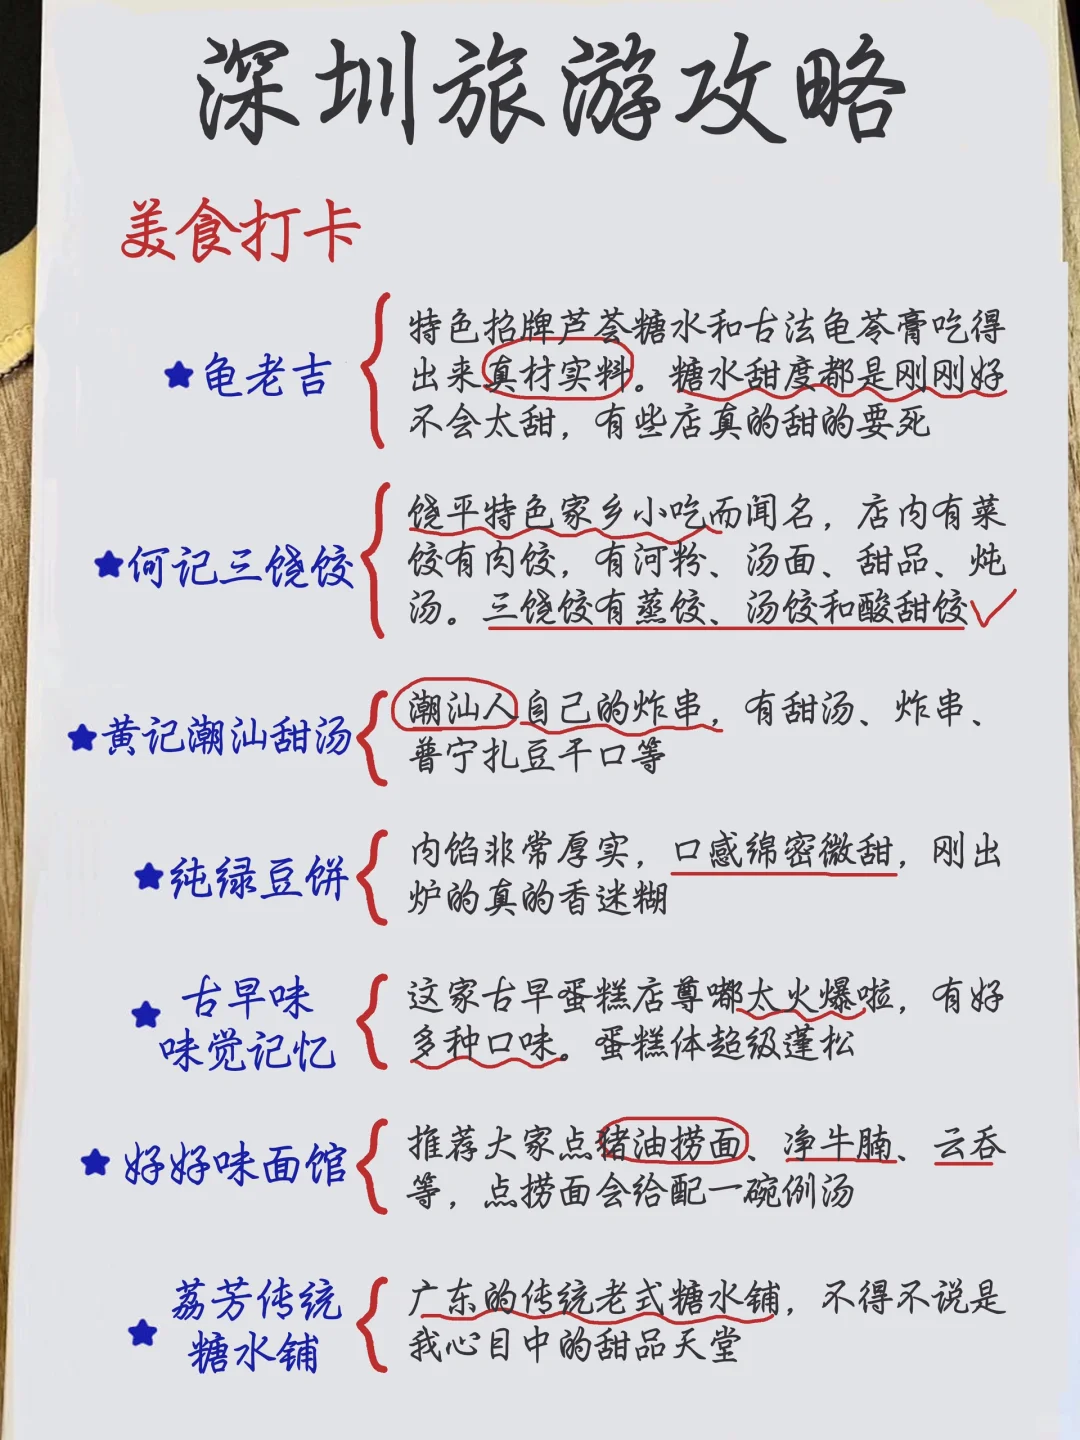 深圳旅游攻略
美食打卡
龟老吉
特色招牌芦荟糖水和古法龟苓膏吃得
出来真材实料。糖水甜度都是刚刚好
不会太甜，有些店真的甜的要死
何记三饶饺
饶平特色家乡小吃而闻名，店内有菜
饺有肉饺，有河粉、汤面、甜品、炖
汤。三饶饺有蒸饺、汤饺和酸甜饺
黄记潮汕甜汤
潮汕人自己的炸串，有甜汤、炸串、
普宁扎豆干口等
纯绿豆饼
内馅非常厚实，口感绵密微甜，刚出
炉的真的香迷糊
古早味
味觉记忆
这家古早蛋糕店尊嘟太火爆啦，有好
多种口味。蛋糕体超级蓬松
好好味面馆
推荐大家点猪油捞面、净牛腩、云吞
等，点捞面会给配一碗例汤
荔芳传统
糖水铺
广东的传统老式糖水铺，不得不说是
我心目中的甜品天堂